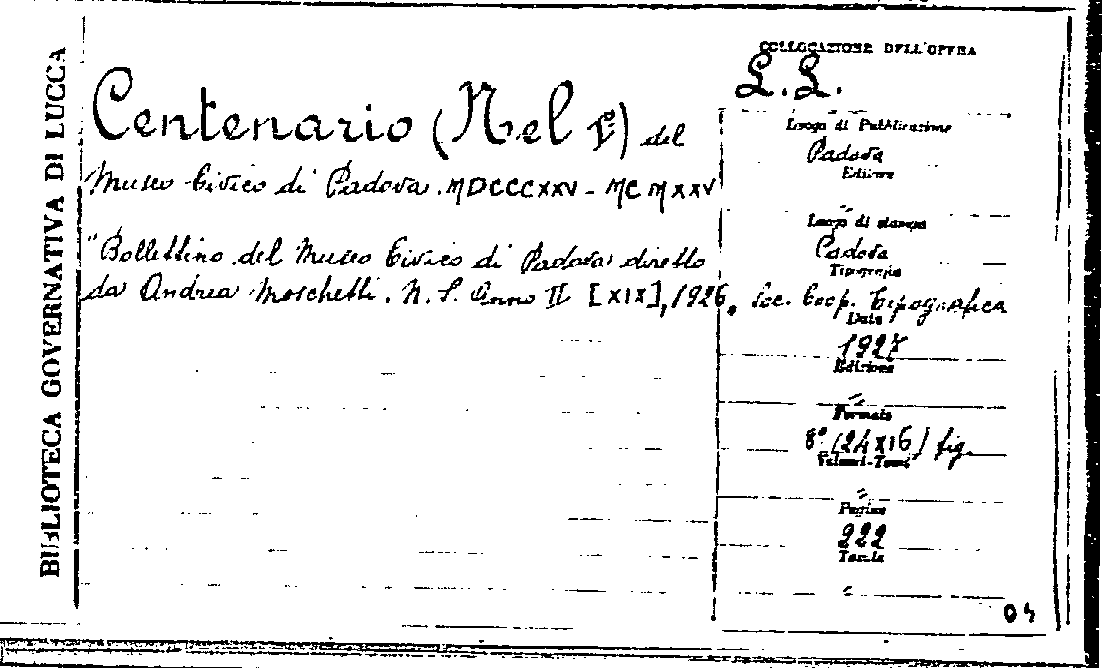 BIBLIOTECA GOVERNATIVA DI LUCCA
Centenario (Nel 1º) del
Museo Civico di Padova. MDCCCXXV - MCMXXV
"Bollettino del Museo Civico di Padova diretto
da Andrea Moschetti. N. S. Anno II [XIX], 1926,
COLLOCAZIONE DELL'OPERA
L.L.
Luogo di Pubblicazione
Padova
Editore
"
Luogo di stampa
Padova
Tipografia
Soc. Coop. Tipografica
Data
1927
Edizione
"
Formato
8º (24x16) fig.
Volumi-Tomi
"
Pagine
222
Tavole
"
04